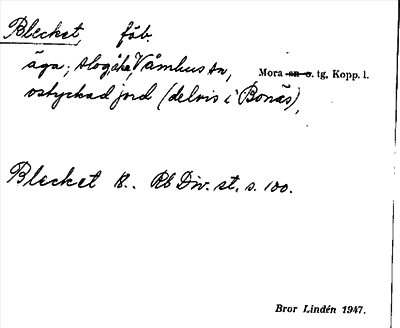 Blecket, fäb.
äga; Våmhus sn, Mora sn o. tg, Kopp. l.
ostyckad jord (delvis i Bonäs),
Blecket B.. Rb Div. st. s. 100.
Bror Lindén 1947.